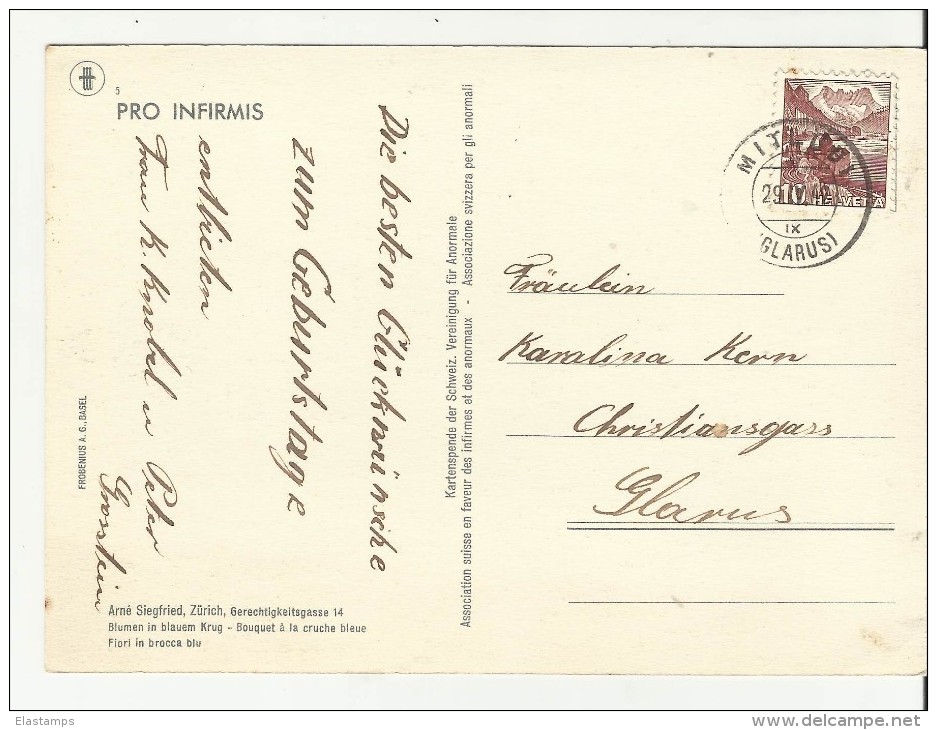 5
PRO INFIRMIS
Die besten Glückwünsche
zum Geburtstage
entbieten
Frau K. Knobel u Peter
Grosstein
FROBENIUS A. G., BASEL
Arné Siegfried, Zürich, Gerechtigkeitsgasse 14
Blumen in blauem Krug - Bouquet à la cruche bleue
Fiori in brocca blu
Kartenspende der Schweiz. Vereinigung für Anormale
Association suisse en faveur des infirmes et des anormaux - Associazione svizzera per gli anormali
HELVETIA
MITLÖDI
IX
(GLARUS)
Fräulein
Karalina Kern
Christiansgass
Glarus
Elastamps
www.delcampe.net